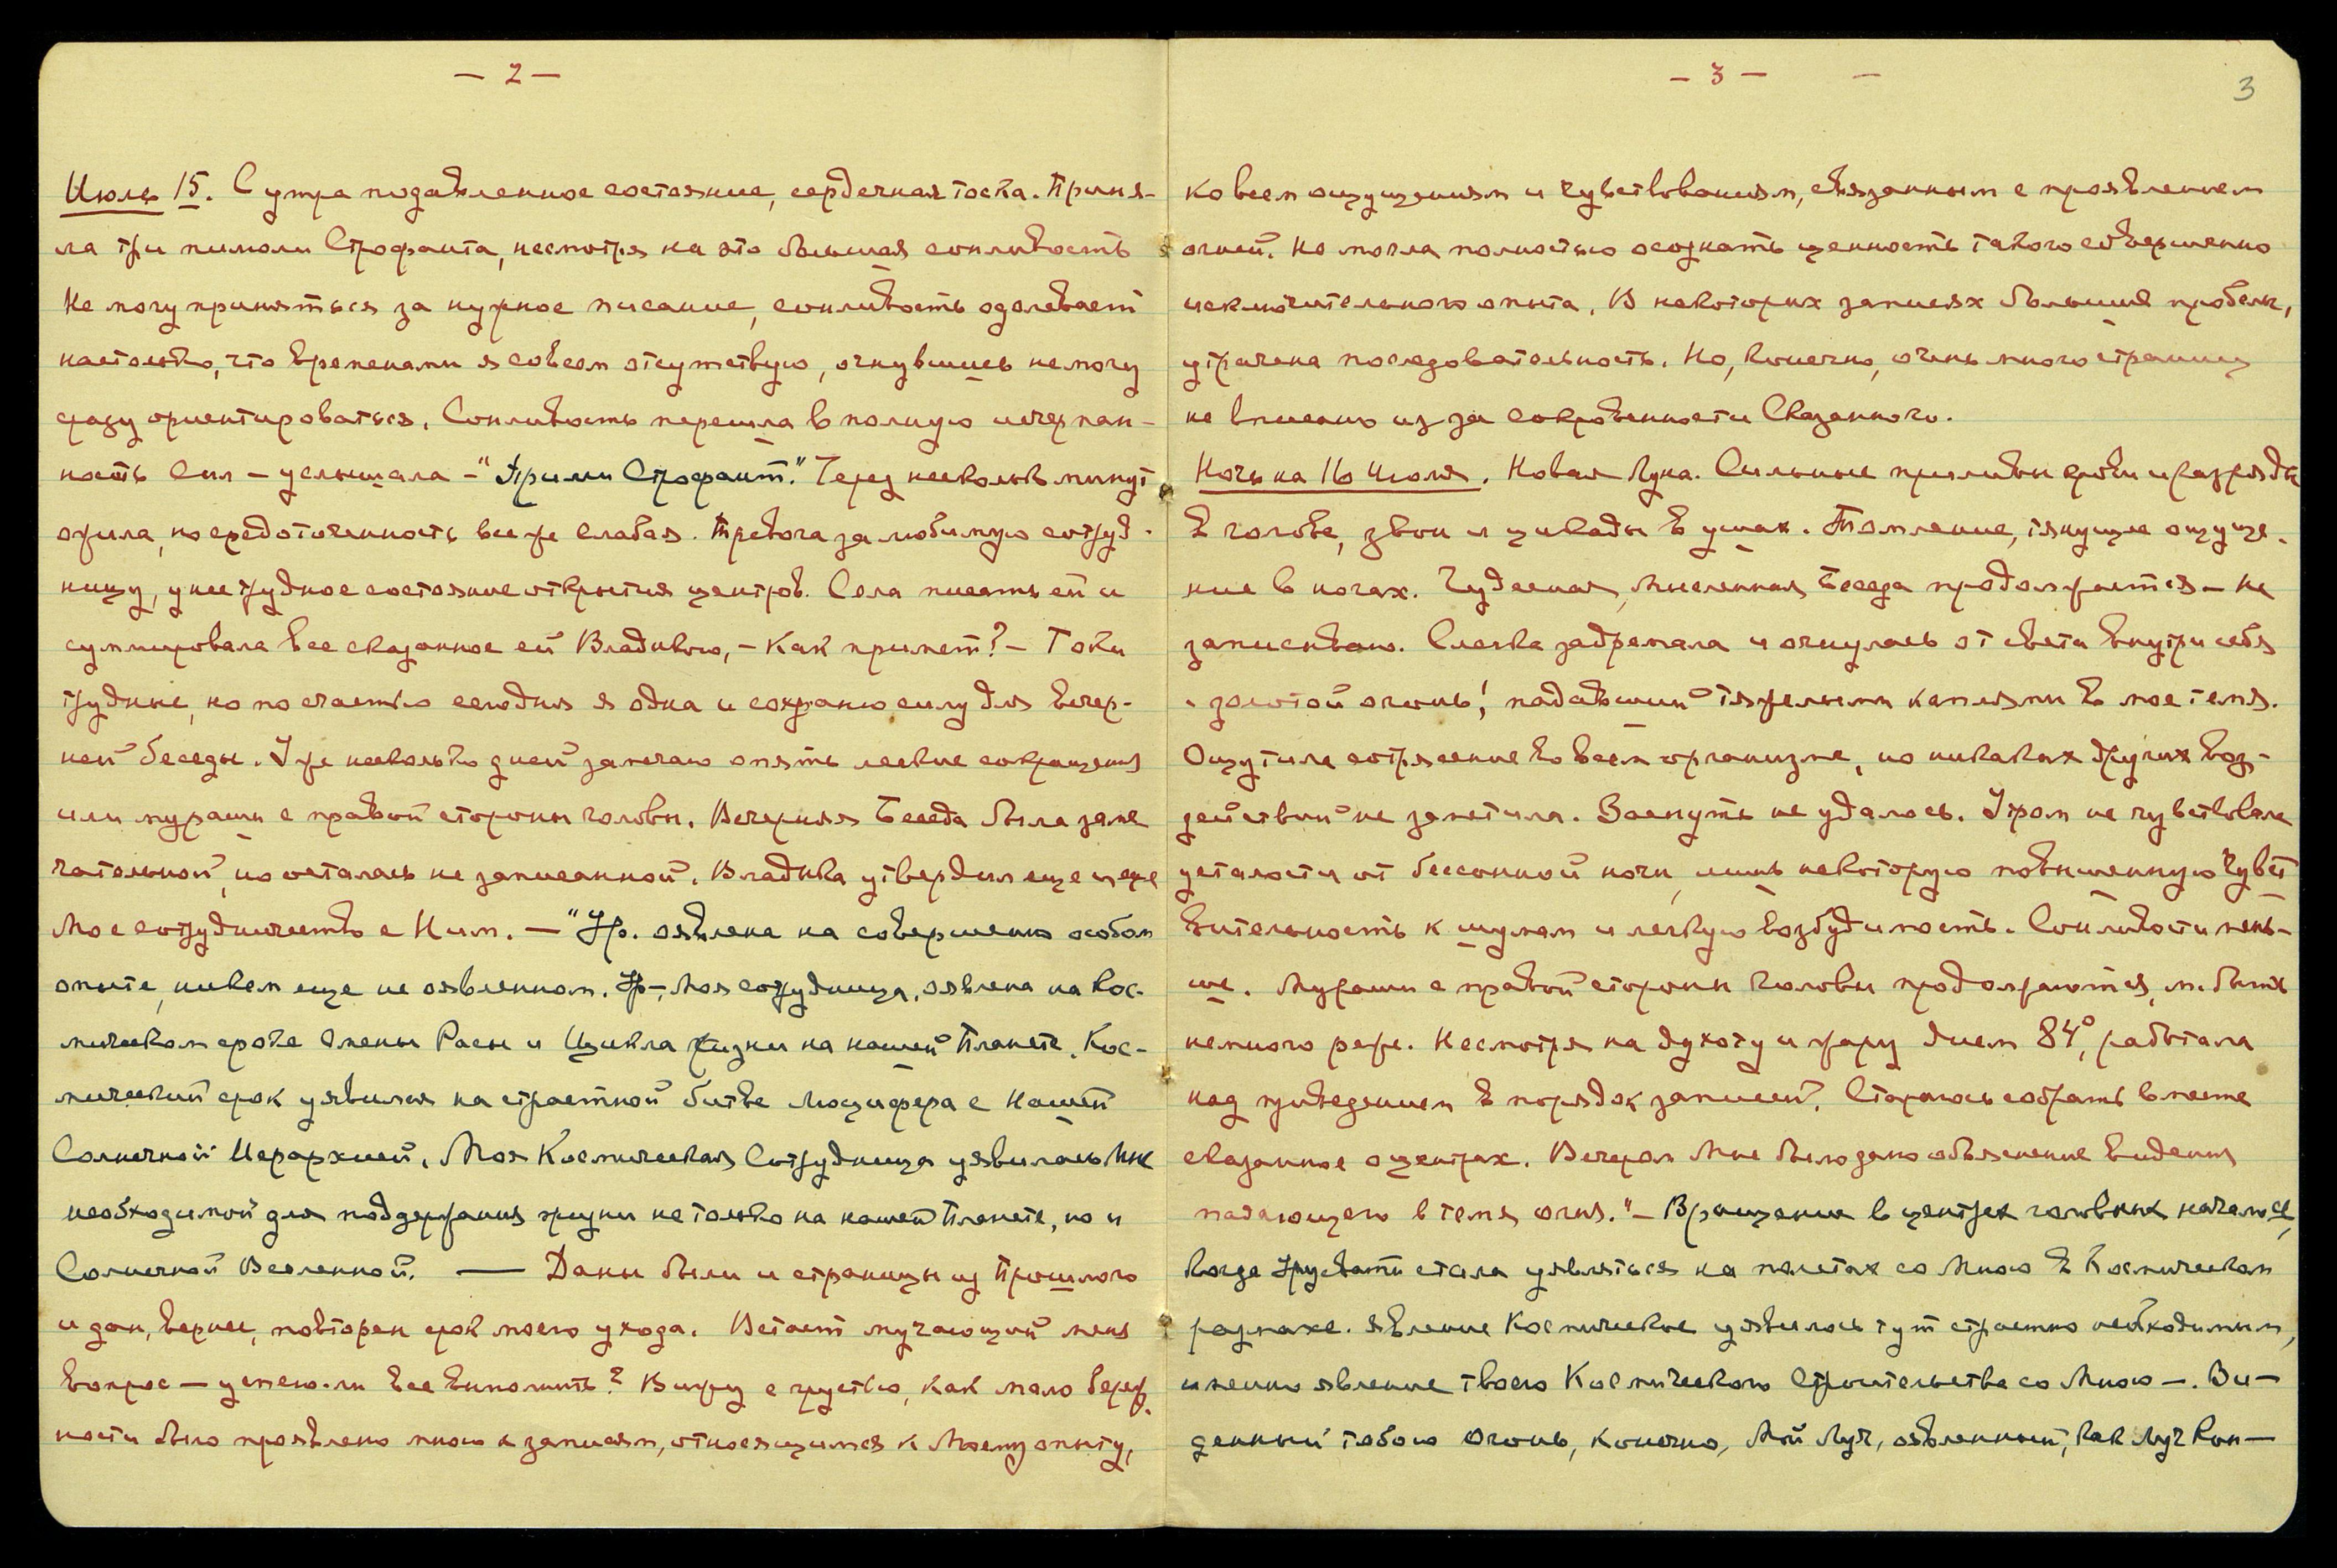 — 2 —
Июль 15. С утра подавленное состояние, сердечная тоска. Приня-
ла три пилюли Строфанта, несмотря на это большая сонливость
Не могу приняться за нужное писание, сонливость одолевает
настолько, что временами я совсем отсутствую, очнувшись не могу
сразу ориентироваться. Сонливость перешла в полную исчерпан-
ность сил — услышала — "Прими Строфант." Через несколько минут
ожила, но средоточенность все же слабая. Тревога за любимую сотруд-
ницу, у нее трудное состояние открытия центров. Села писать ей и
суммировала все сказанное ей Владыкою, — Как примет? — Токи
трудные, но по счастью сегодня я одна и сохраню силу для вечер-
ней беседы. Уже несколько дней замечаю опять легкие сокращения
или мураши с правой стороны головы. Вечерняя Беседа была заме
чательной, но осталась не записанной. Владыка утвердил еще и еще
мое сотрудничество с Ним. — "Ур. оявлена на совершенно особом
опыте, никем еще не оявленном. Ур-, Моя сотрудница, оявлена на Кос-
мическом сроке смены Расы и Цикла жизни на нашей Планете. Кос-
мический срок уявился на страстной битве Люцифера с Нашей
Солнечной Иерархией. Моя Космическая Сотрудница уявилась Мне
необходимой для поддержания жизни не только на нашей Планете, но и
Солнечной Вселенной. — Даны были и страницы из Прошлого
и дан, вернее, повторен срок моего ухода. Встает мучающий меня
вопрос — успею-ли все выполнить? Вижу с грустью, как мало береж
ности было проявлено мною к записям, относящимся к Моему опыту,
— 3 — —
3
ко всем ощущениям и чувствованиям, связанным с проявлением
огней. Не могла полностью осознать ценность такого совершенно
исключительного опыта. В некоторых записях большие пробелы,
утрачена последовательность. Но, конечно, очень много страниц
не вписано из за сокровенности Сказанного.
Ночь на 16 Июля. Новая Луна. Сильные приливы крови и разряды
в голове, звон и цикады в ушах. Томление, тянущие ощуще-
ние в ногах. Чудесная, мысленная Беседа продолжается — не
записываю. Слегка задремала и очнулась от света внутри себя
- золотой огонь! падавший тяжелыми каплями в мое темя.
Ощутила сотрясение во всем организме, но никаких других воз-
действий не заметила. Заснуть не удалось. Утром не чувствовала
усталости от бессонной ночи, лишь некоторую повышенную чувст
вительность к шумам и легкую возбудимость. Сонливости мень-
ше. Мураши с правой стороны головы продолжаются, м. быть
немного реже. Несмотря на духоту и жару днем 84°, работала
над приведением в порядок записей. Стараюсь собрать вместе
сказанное о центрах. Вечером Мне было дано объяснение видения
падающего в темя огня. "— Вращение в центрах головных началось,
когда Урусвати стала уявляться на полетах со Мною в Космическом
размахе. Явление Космическое уявилось тут страстно необходимым,
именно явление твоего Космического Строительства со Мною —. Ви-
денный тобою Огонь, конечно, Мой Луч, оявленный, как Луч Кон-